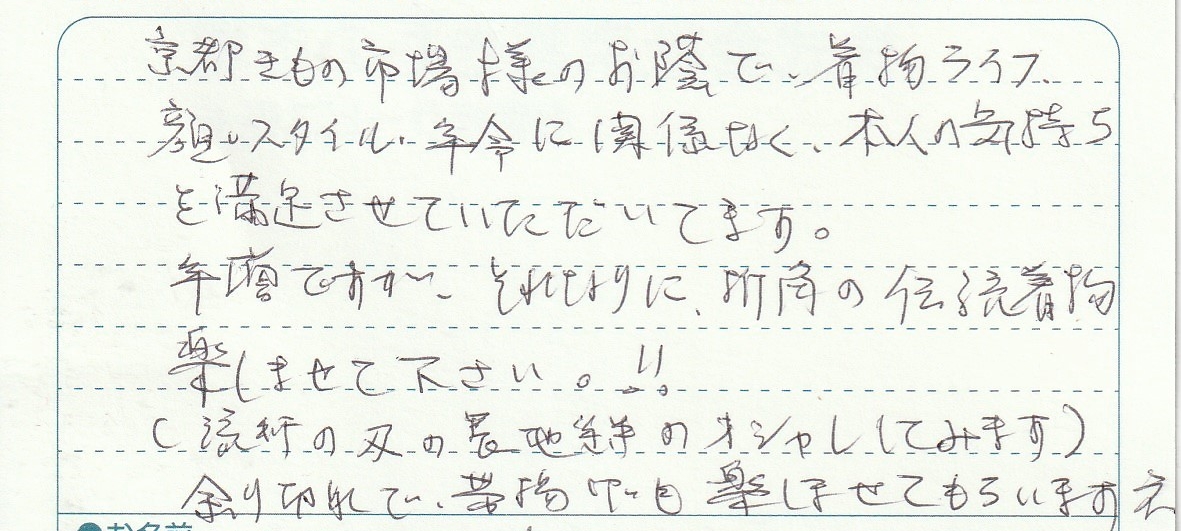 京都きもの市場様のお蔭で、着物ライフ、
顔、スタイル、年令に関係なく、本人の気持ち
を満足させていただいてます。
年増ですが、それなりに、折角の伝統着物
楽しませて下さい。!!
(流行の刃の のオシャレしてみます)
余り切れで、帯揚 楽しませてもらいますネ
お名前